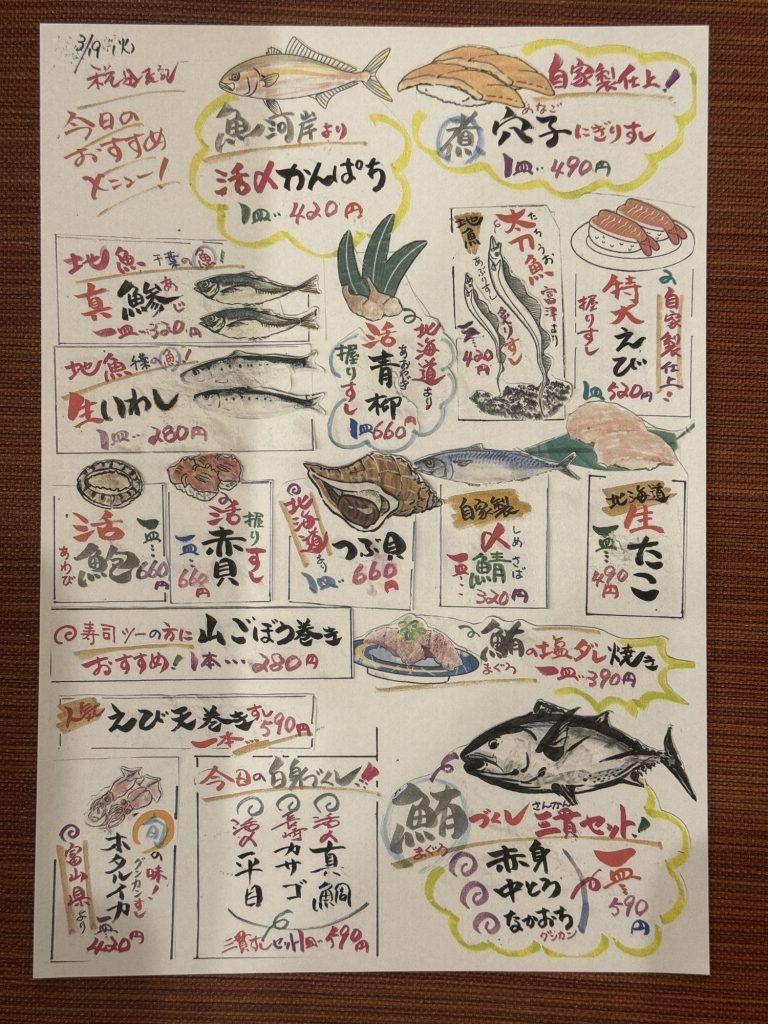 3/19 (火)
税込表記
今日の
おすすめ
メニュー!
魚河岸より
活〆かんぱち
1皿‥420円
自家製仕上!
あなご
煮 穴子にぎりすし
1皿‥490円
地魚 千葉の魚!
真鯵 あじ
一皿‥320円
地魚 千葉の魚!
生いわし
1皿‥280円
北海道より
活青柳 あおやぎ
握りすし
1皿660円
地魚
太刀魚 たちうお
富津より
炙りすし あぶりすし
一皿‥420円
自家製仕上!
特大えび
握りすし
1皿520円
活鮑
あわび
一皿‥660円
握りすし
活赤貝
一皿‥660円
北海道より
つぶ貝
1皿‥660円
自家製
〆鯖 しめさば
一皿‥320円
北海道
生たこ
一皿‥490円
寿司ツーの方に
おすすめ!
山ごぼう巻き
1本‥‥280円
鮪の塩ダレ焼き
まぐろ
一皿‥390円
人気 えび天巻きすし
一本‥590円
旬の味!
ホタルイカ
グンカンすし
富山県より
一皿‥420円
今日の白身づくし!!
活〆真鯛
長崎カサゴ
活〆平目
三貫すしセット1皿‥590円
鮪づくし 三貫セット!
まぐろ
さんかん
赤身
中とろ
なかおち
グンカン
一皿‥590円